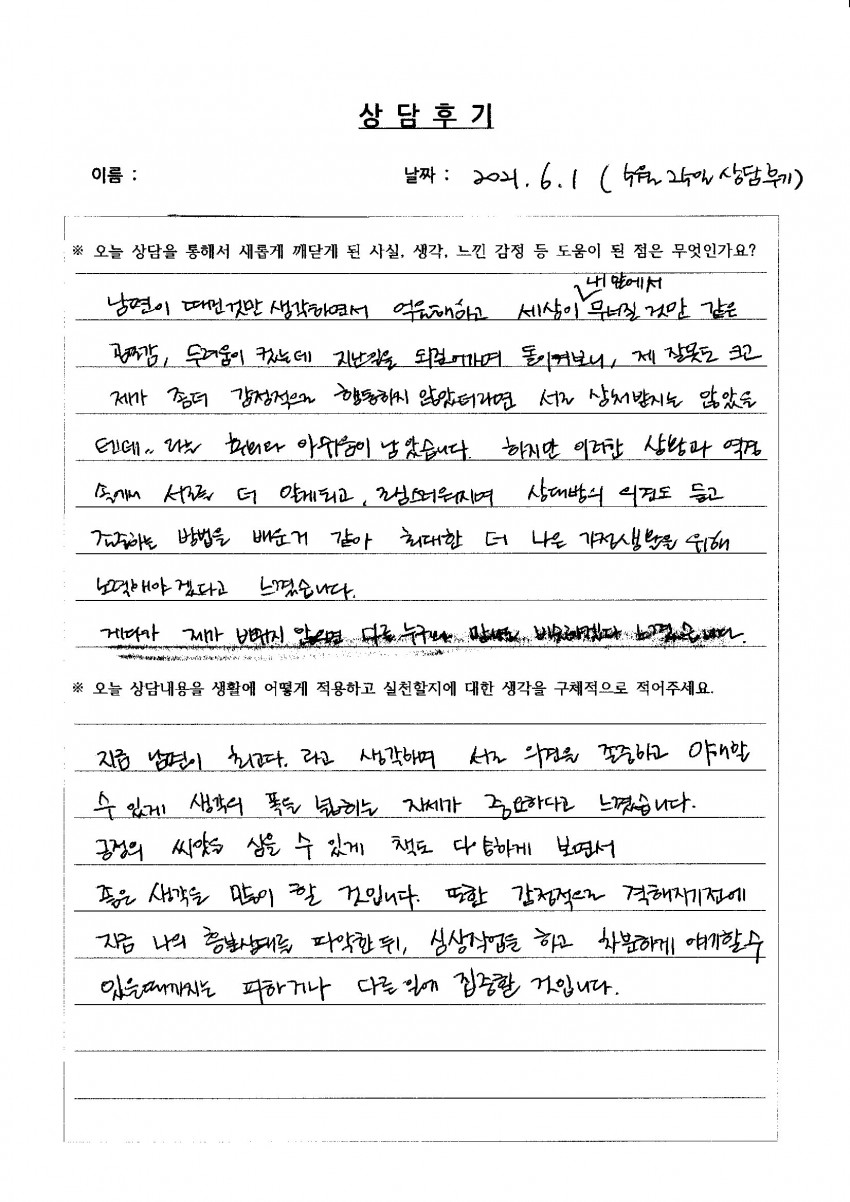 상 담 후 기
이름 :
날짜 : 2021. 6. 1 ( 상담후기)
※ 오늘 상담을 통해서 새롭게 깨닫게 된 사실, 생각, 느낀 감정 등 도움이 된 점은 무엇인가요?
내 앞에서
남편이 때린것만 생각하면서 억울해하고 세상이 무너질 것만 같은
두려움이 컸는데 지난일을 되짚어가며 돌이켜보니, 제 잘못도 크고
제가 좀더 감정적으로 행동하지 않았더라면 서로 상처받지는 않았을
텐데.. 라는 후회와 아쉬움이 남았습니다. 하지만 이러한 상황과 역경
속에서 서로를 더 알게되고, 조심스러워지며 상대방의 의견도 듣고
존중하는 방법을 배운거 같아 최대한 더 나은 가정생활을 위해
노력해야겠다고 느꼈습니다.
게다가 제가 바뀌지 않으면 다른 누구와 만나도 느꼈습니다.
※ 오늘 상담내용을 생활에 어떻게 적용하고 실천할지에 대한 생각을 구체적으로 적어주세요.
지금 남편이 최고다. 라고 생각하며 서로 의견을 존중하고 이해할
수 있게 생각의 폭을 넓히는 자세가 중요하다고 느꼈습니다.
긍정의 씨앗을 심을 수 있게 책도 다양하게 보면서
좋은 생각을 많이 할 것입니다. 또한 감정적으로 격해지기전에
지금 나의 흥분상태를 파악한 뒤, 심상작업을 하고 차분하게 얘기할수
있을때까지는 피하거나 다른 일에 집중할 것입니다.